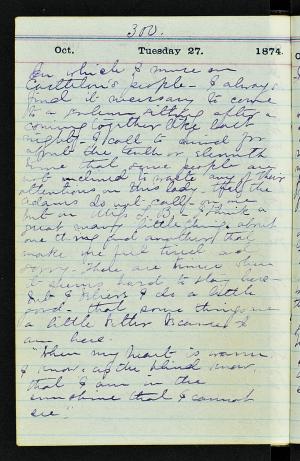 300.
Oct. Tuesday 27. 1874.
In which I muse on
people - I always
find it necessary to come
to a solemn sitting after a
coming together like last
night - I call to mind for
about the tenth or eleventh
time that some people are
not inclined to waste any of their
attentions on this lady. That the
Adams do not call on me
but on Miss B. I think a
great many little things about
one thing and another that
make me feel tired and
sorry. There are times when
it seems hard to stay here
but I believe I do a little
good - that some things are
a little better because I
am here.
"When my heart is warm
I know, as the blind know,
that I am in the
sunshine that I cannot
see."